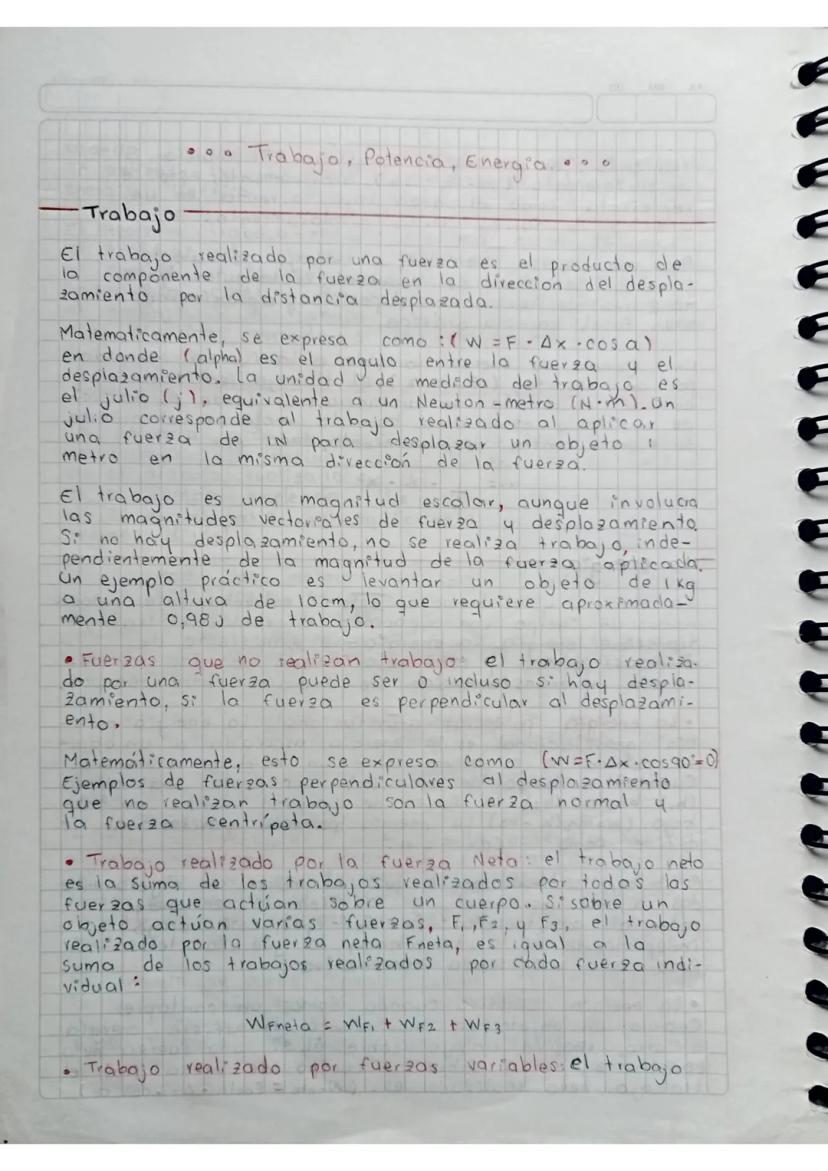 Trabajo, Potencia, Energía
Trabajo
El trabajo realizado por una fuerza es el producto de
la componente de la fuerza en la direccion del despla-
zamiento por la distancia desplazada.
Matematicamente, se expresa como : ( W = F · Δx · cos a )
en donde (alpha) es el angulo entre la fuerza y el
desplazamiento. La unidad de medida del trabajo es
el julio (j), equivalente a un Newton-metro (N·m). Un
julio corresponde al trabajo realizado al aplicar
una fuerza de 1N para desplazar un objeto 1
metro en la misma dirección de la fuerza.
El trabajo es una magnitud escalar, aunque involucra
las magnitudes vectoreales de fuerza y desplazamiento.
Si no hay desplazamiento, no se realiza trabajo, inde-
pendientemente de la magnitud de la fuerza aplicada.
Un ejemplo práctico es levantar un objeto de 1kg
a una altura de 10cm, lo que requiere aproximada-
mente 0,98J de trabajo.
• Fuerzas que no realizan trabajo: el trabajo realiza-
do por una fuerza puede ser 0 incluso si hay despla-
zamiento, si la fuerza es perpendicular al desplazami-
ento.
Matemáticamente, esto se expresa como (W=F·Δx·cos90°=0)
Ejemplos de fuerzas perpendiculares al desplazamiento
que no realizan trabajo son la fuerza normal y
la fuerza centrípeta.
• Trabajo realizado por la fuerza Neta: el trabajo neto
es la suma de los trabajos realizados por todas las
fuerzas que actúan sobre un cuerpo. Si sobre un
objeto actúan varias fuerzas, F1, F2, y F3, el trabajo
realizado por la fuerza neta Fneta, es igual a la
suma de los trabajos realizados por cada fuerza indi-
vidual :
WFneta = WF1 + WF2 + WF3
• Trabajo realizado por fuerzas variables: el trabajo